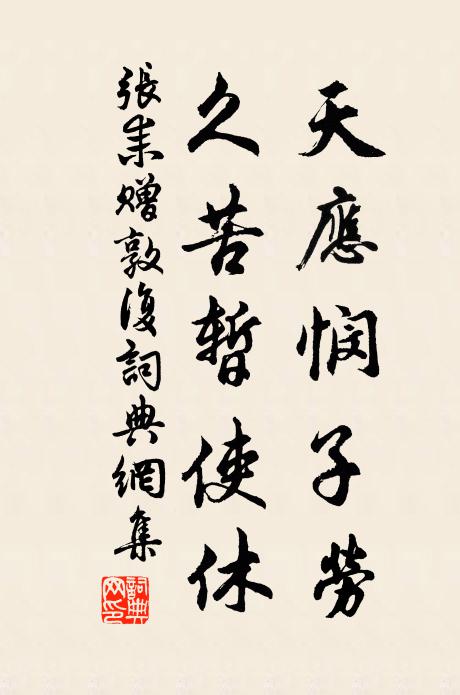 天應憫子勞
久苦暫使休
張耒贈敦復詞典網集
詞典
网印